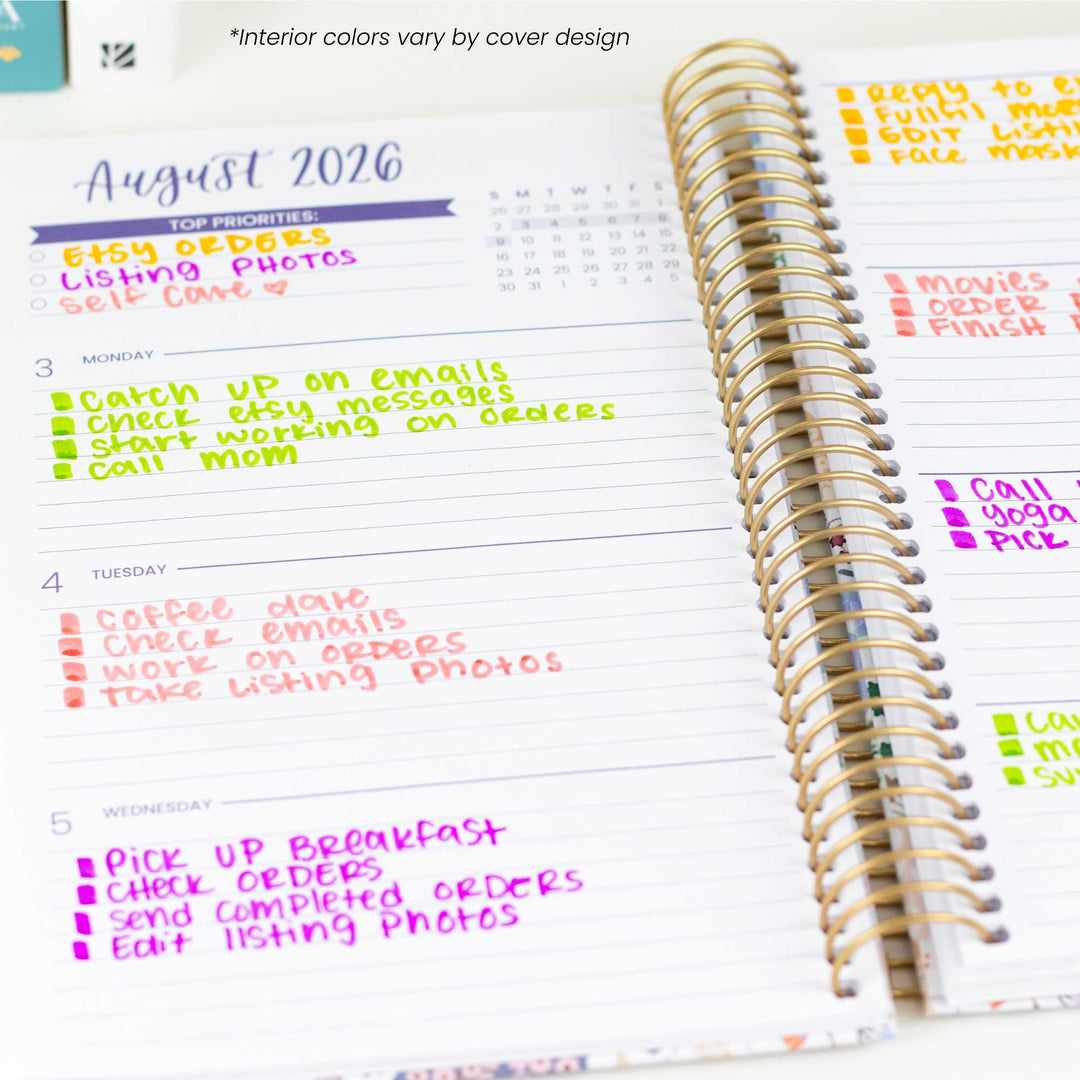 *Interior colors vary by cover design
August 2026
TOP PRIORITIES:
Etsy ORDERS
Listing PHOTOS
Self care ♡
S M T W T F S
26 27 28 29 30 31 1
2 3 4 5 6 7 8
9 10 11 12 13 14 15
16 17 18 19 20 21 22
23 24 25 26 27 28 29
30 31 1 2 3 4 5
3 MONDAY
catch up on emails
check etsy messages
start working on orders
call mom
4 TUESDAY
coffee date
check emails
work on orders
take listing photos
5 WEDNESDAY
Pick up Breakfast
CHeck ORDERS
Send completed ORDERS
Edit listing photos
Reply to
Fullfil
EDIT
Face mask
Movies
ORDER
FINISH
Call
yoga
Pick